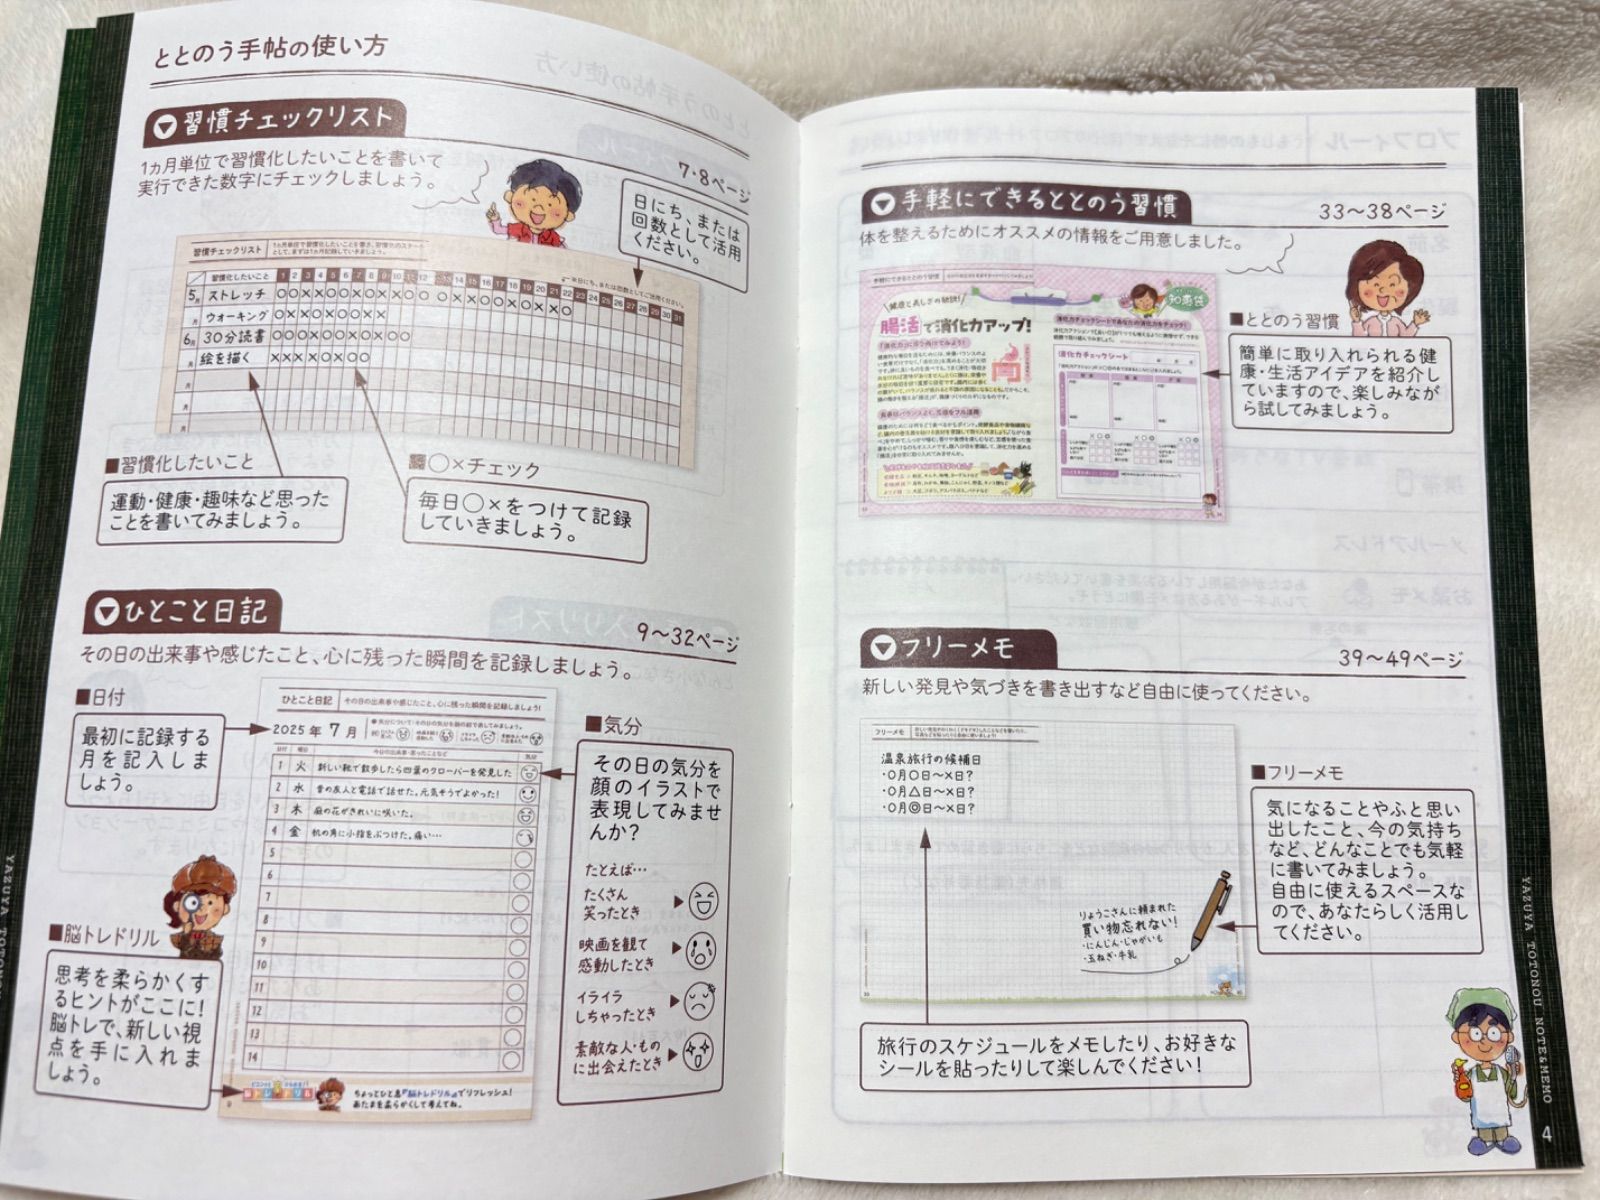 ととのう手帖の使い方
習慣チェックリスト
7・8ページ
1カ月単位で習慣化したいことを書いて
実行できた数字にチェックしましょう。
日にち、または
回数として活用
ください。
習慣チェックリスト
習慣化したいこと 1 2 3 4 5 6 7 8 9 10 11 12 13 14 15 16 17 18 19 20 21 22 23 24 25 26 27 28 29 30 31
5月 ストレッチ
月 ウオーキング
6月 30分読書
月 絵を描く
月
月
月
■習慣化したいこと
運動・健康・趣味など思った
ことを書いてみましょう。
○×チェック
毎日○×をつけて記録
していきましょう。
ひとこと日記
9〜32ページ
その日の出来事や感じたこと、心に残った瞬間を記録しましょう。
■日付
最初に記録する
月を記入しま
しょう。
ひとこと日記 その日の出来事や感じたこと、心に残った瞬間を記録しましょう!
2025年 7月
日付 曜日 今日の出来事・思ったことなど 気分
1 火 新しい靴で散歩したら四葉のクローバーを発見した
2 水 昔の友人と電話で話せた。元気そうでよかった!
3 木 庭の花がきれいに咲いた。
4 金 机の角に小指をぶつけた。痛い…
5
6
7
8
9
10
11
12
13
14
脳トレドリル
ちょっとひと息『脳トレドリル』でリフレッシュ!
あたまを柔らかくして考えてね。
■気分
その日の気分を
顔のイラストで
表現してみませ
んか?
たとえば…
たくさん
笑ったとき
映画を観て
感動したとき
イライラ
しちゃったとき
素敵な人・もの
に出会えたとき
■脳トレドリル
思考を柔らかくす
るヒントがここに!
脳トレで、新しい視
点を手に入れま
しょう。
手軽にできるととのう習慣
33〜38ページ
体を整えるためにオススメの情報をご用意しました。
手軽にできるととのう習慣
知恵袋
腸活で消化力アップ!
消化力チェックシートであなたの消化力をチェック!
消化力チェックシート
■ととのう習慣
簡単に取り入れられる健
康・生活アイデアを紹介し
ていますので、楽しみなが
ら試してみましょう。
フリーメモ
39〜49ページ
新しい発見や気づきを書き出すなど自由に使ってください。
フリーメモ
温泉旅行の候補日
・○月○日〜×日?
・○月△日〜×日?
・○月◎日〜×日?
りょうこさんに頼まれた
買い物忘れない!
・にんじん・じゃがいも
・玉ねぎ・牛乳
■フリーメモ
気になることやふと思い
出したこと、今の気持ち
など、どんなことでも気軽
に書いてみましょう。
自由に使えるスペースな
ので、あなたらしく活用し
てください。
旅行のスケジュールをメモしたり、お好きな
シールを貼ったりして楽しんでください!
YAZUYA TOTONOU NOTE&MEMO
4